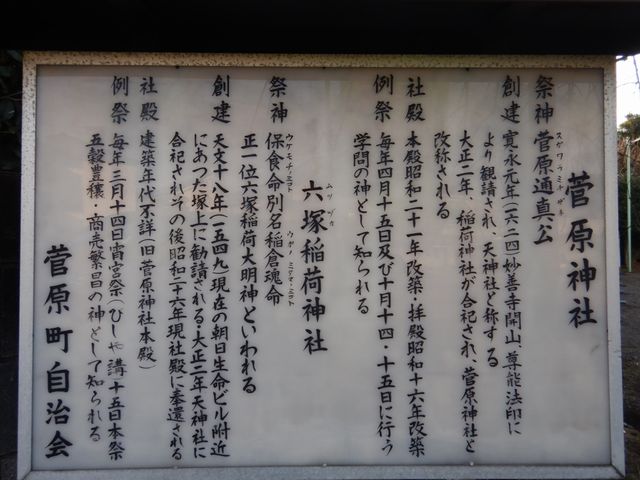 菅原神社
祭神 菅原道真公
スガワラミチザネ
創建 寛永元年(一六二四)妙善寺開山、尊能法印に
より観請され、天神社と称する
大正二年、稲荷神社が合祀され、菅原神社と
改称される
社殿 本殿昭和二十一年改築・拝殿昭和十六年改築
例祭 毎年四月十五日及び十月十四・十五日に行う
学問の神として知られる
六塚稲荷神社
ムツヅカ
祭神 保食命別名稲倉魂命
ウケモチノミコト ウガノミタマノミコト
正一位六塚稲荷大明神といわれる
創建 天文十八年(一五四九)現在の朝日生命ビル附近
にあつた塚上に勧請される・大正二年天神社に
合祀されその後昭和二十六年現社殿に奉還される
社殿 建築年代不詳(旧菅原神社本殿)
例祭 毎年三月十四日宵宮祭(ひしゃ講)十五日本祭
五穀豊穣・商売繁昌の神として知られる
菅原町自治会